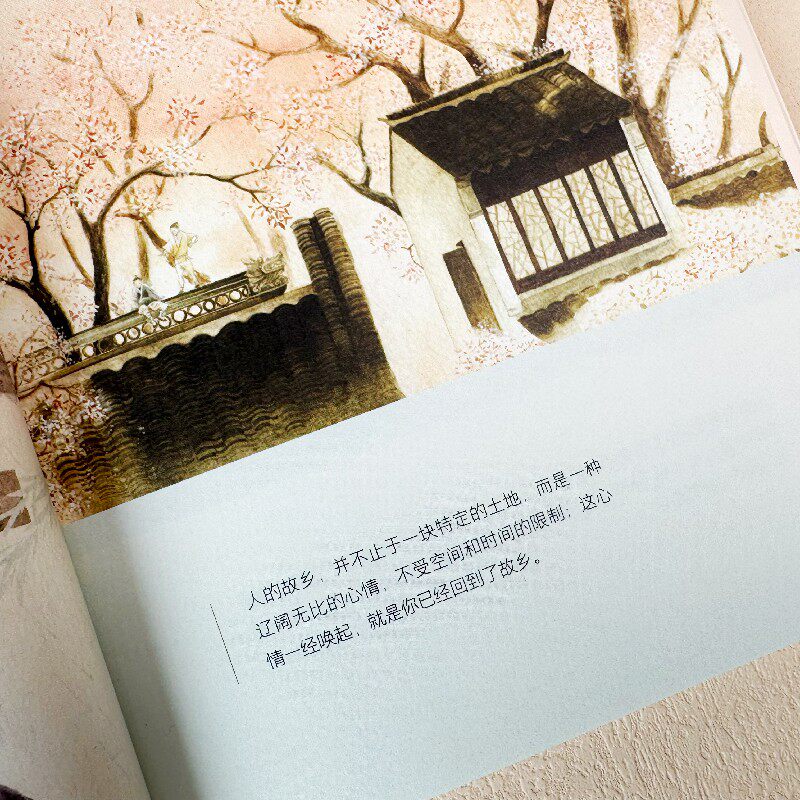 人的故乡，并不止于一块特定的土地，而是一种
辽阔无比的心情，不受空间和时间的限制；这心
情一经唤起，就是你已经回到了故乡。